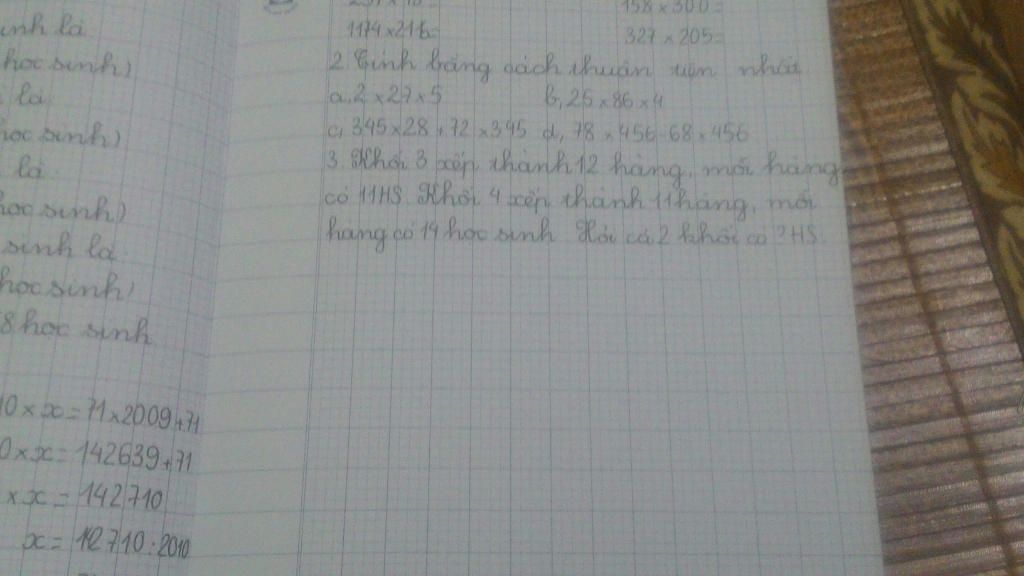 inh là
học sinh)
là
học sinh)
là
học sinh)
sinh là
học sinh)
8 học sinh
10 × x = 71 × 2009 + 71
0 × x = 142639 + 71
× x = 142710
x = 12710 : 2010
158 × 300 =
1174 × 216 = 327 × 205 =
2. Tính bằng cách thuận tiện nhất
a, 2 × 27 × 5 b, 25 × 86 × 4
c, 345 × 28 + 72 × 345 d, 78 × 456 - 68 × 456
3. Khối 3 xếp thành 12 hàng, mỗi hàng
có 11 HS. Khối 4 xếp thành 11 hàng, mỗi
hàng có 14 học sinh Hỏi cả 2 khối có ? HS.